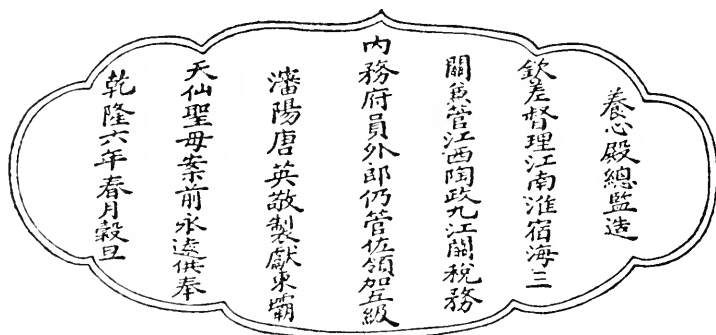 養心殿總監造
欽差督理江南淮宿海三
關兼管江西陶政九江關稅務
內務府員外郎仍管佐領加五級
瀋陽唐英敬製獻東壩
天仙聖母案前永遠供奉
乾隆六年春月穀旦